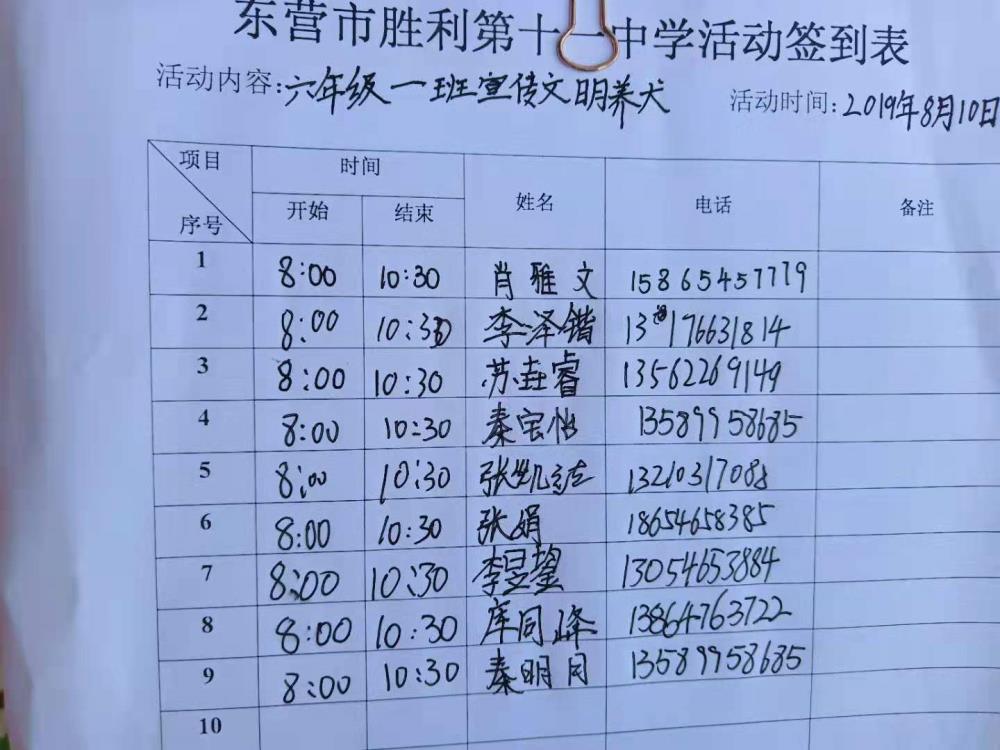 东营市胜利第十一中学活动签到表
活动内容:六年级一班宣传文明养犬 活动时间:2019年8月10日
项目 时间
序号 开始 结束 姓名 电话 备注
1 8:00 10:30 肖雅文 15865457779
2 8:00 10:30 李泽锴 13176631814
3 8:00 10:30 苏垚睿 13562269149
4 8:00 10:30 秦宝怡 13589958685
5 8:00 10:30 张凯 13210317088
6 8:00 10:30 张娟 18654658385
7 8:00 10:30 李昱鋆 13054653884
8 8:00 10:30 库同峰 13864763722
9 8:00 10:30 秦明月 13589958685
10